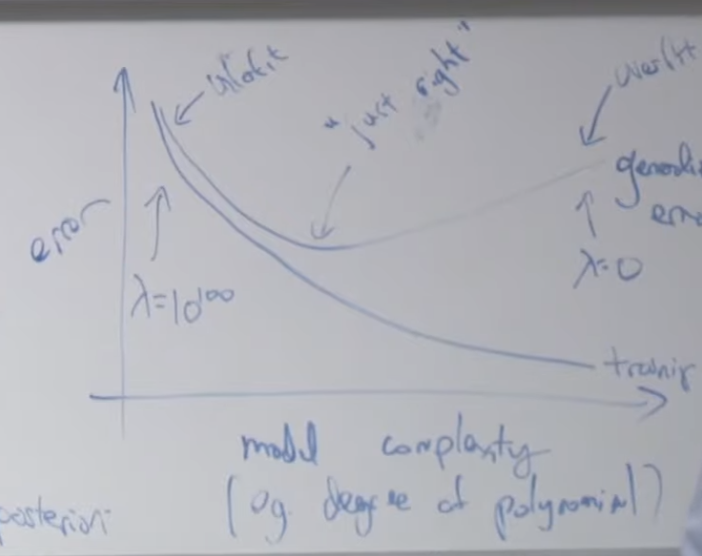 underfit
"just right"
overfit
error
generaliz
error
λ=10¹⁰⁰
λ=0
training
model complexity
(eg. degree of polynomial)
posteriori